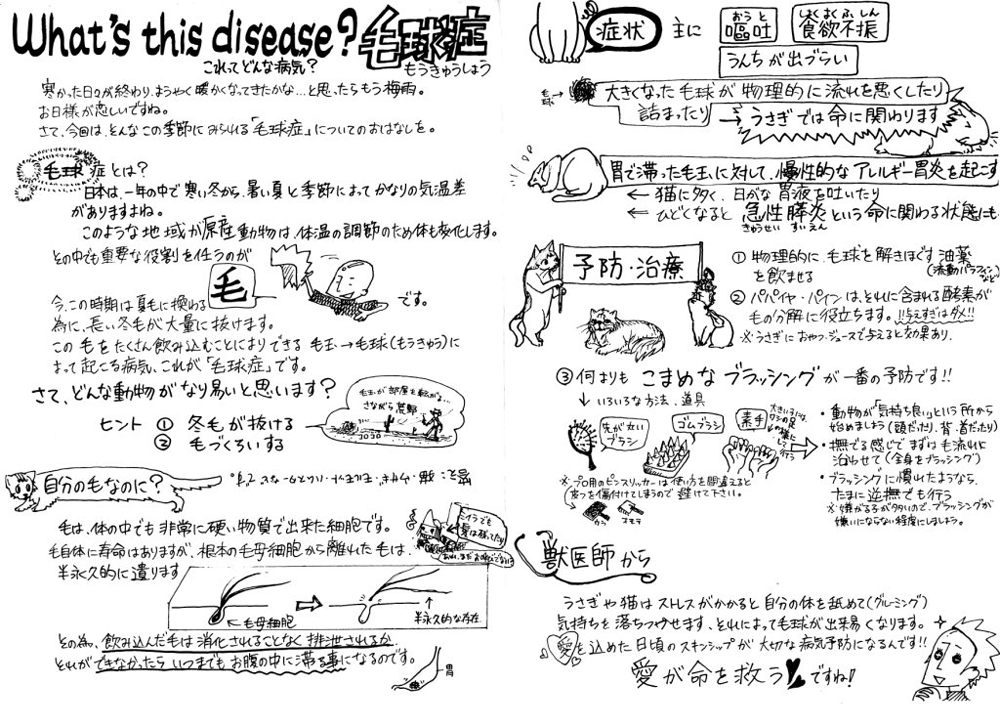 What's this disease? 毛球症
これってどんな病気?
もうきゅうしょう
寒かった日々が終わり、ようやく暖かくなってきたかな…と思ったらもう梅雨。
お日様が恋しいですね。
さて、今回は、そんなこの季節にみられる「毛球症」についてのおはなしを。
毛球症とは?
日本は、一年の中で寒い冬から、暑い夏と季節によってかなりの気温差
がありますよね。
このような地域が原産動物は、体温の調節のため体も変化します。
その中でも重要な役割を任うのが
毛
です。
今、この時期は夏毛に換わる
為に、長い冬毛が大量に抜けます。
この毛をたくさん飲み込むことによりできる毛玉→毛球(もうきゅう)に
よって起こる病気、これが「毛球症」です。
さて、どんな動物がなり易いと思います?
ヒント ① 冬毛が抜ける
② 毛づくろいする
毛玉が部屋を転がる…
さながら荒野
自分の毛なのに?
毛は、体の中でも非常に硬い物質で出来た細胞です。
毛自体に寿命はありますが、根本の毛母細胞から離れた毛は、
半永久的に遺ります
ミイラでも
髪は残ってたり
毛母細胞
半永久的な存在
その為、飲み込んだ毛は消化されることなく排泄されるか、
それができなかったらいつまでもお腹の中に滞る事になるのです。
胃
症状 主に 嘔吐 食欲不振
おうと
しょくよくふしん
うんちが出づらい
毛球→
大きくなった毛球が物理的に流れを悪くしたり
詰まったり → うさぎでは命に関わります
胃で滞った毛玉に対して、慢性的なアレルギー胃炎を起こす
← 猫に多く、日がな胃液を吐いたり
← ひどくなると 急性膵炎という命に関わる状態にも
きゅうせい すいえん
予防・治療
① 物理的に、毛球を解きほぐす油薬
を飲ませる
(流動パラフィンなど)
② パパイヤ・パインは、それに含まれる酵素が
毛の分解に役立ちます。!!与えすぎはダメ!!
※うさぎにおやつ・ジュースで与えると効果あり。
③ 何よりも こまめなブラッシングが一番の予防です!!
↓ いろいろな方法、道具
先が丸い
ブラシ
ゴムブラシ
素手
※プロ用のピンスリッカーは使い方を間違えると
皮フを傷付けてしまうので避けて下さい。
・動物が「気持ち良い」という所から
始めましょう(頭だったり、背・首だったり)
・撫でる感じでまずは毛流れに
沿わせて(全身をブラッシング)
・ブラッシングに慣れたようなら、
たまに逆撫でも行う
※嫌がる子が多いので、ブラッシングが
嫌いにならない程度にしましょう。
獣医師から
うさぎや猫はストレスがかかると自分の体を舐めて(グルーミング)
気持ちを落ちつかせます、それによって毛球が出来易くなります。
愛を込めた日頃のスキンシップが大切な病気予防になるんです!!
愛が命を救う♥ですね!